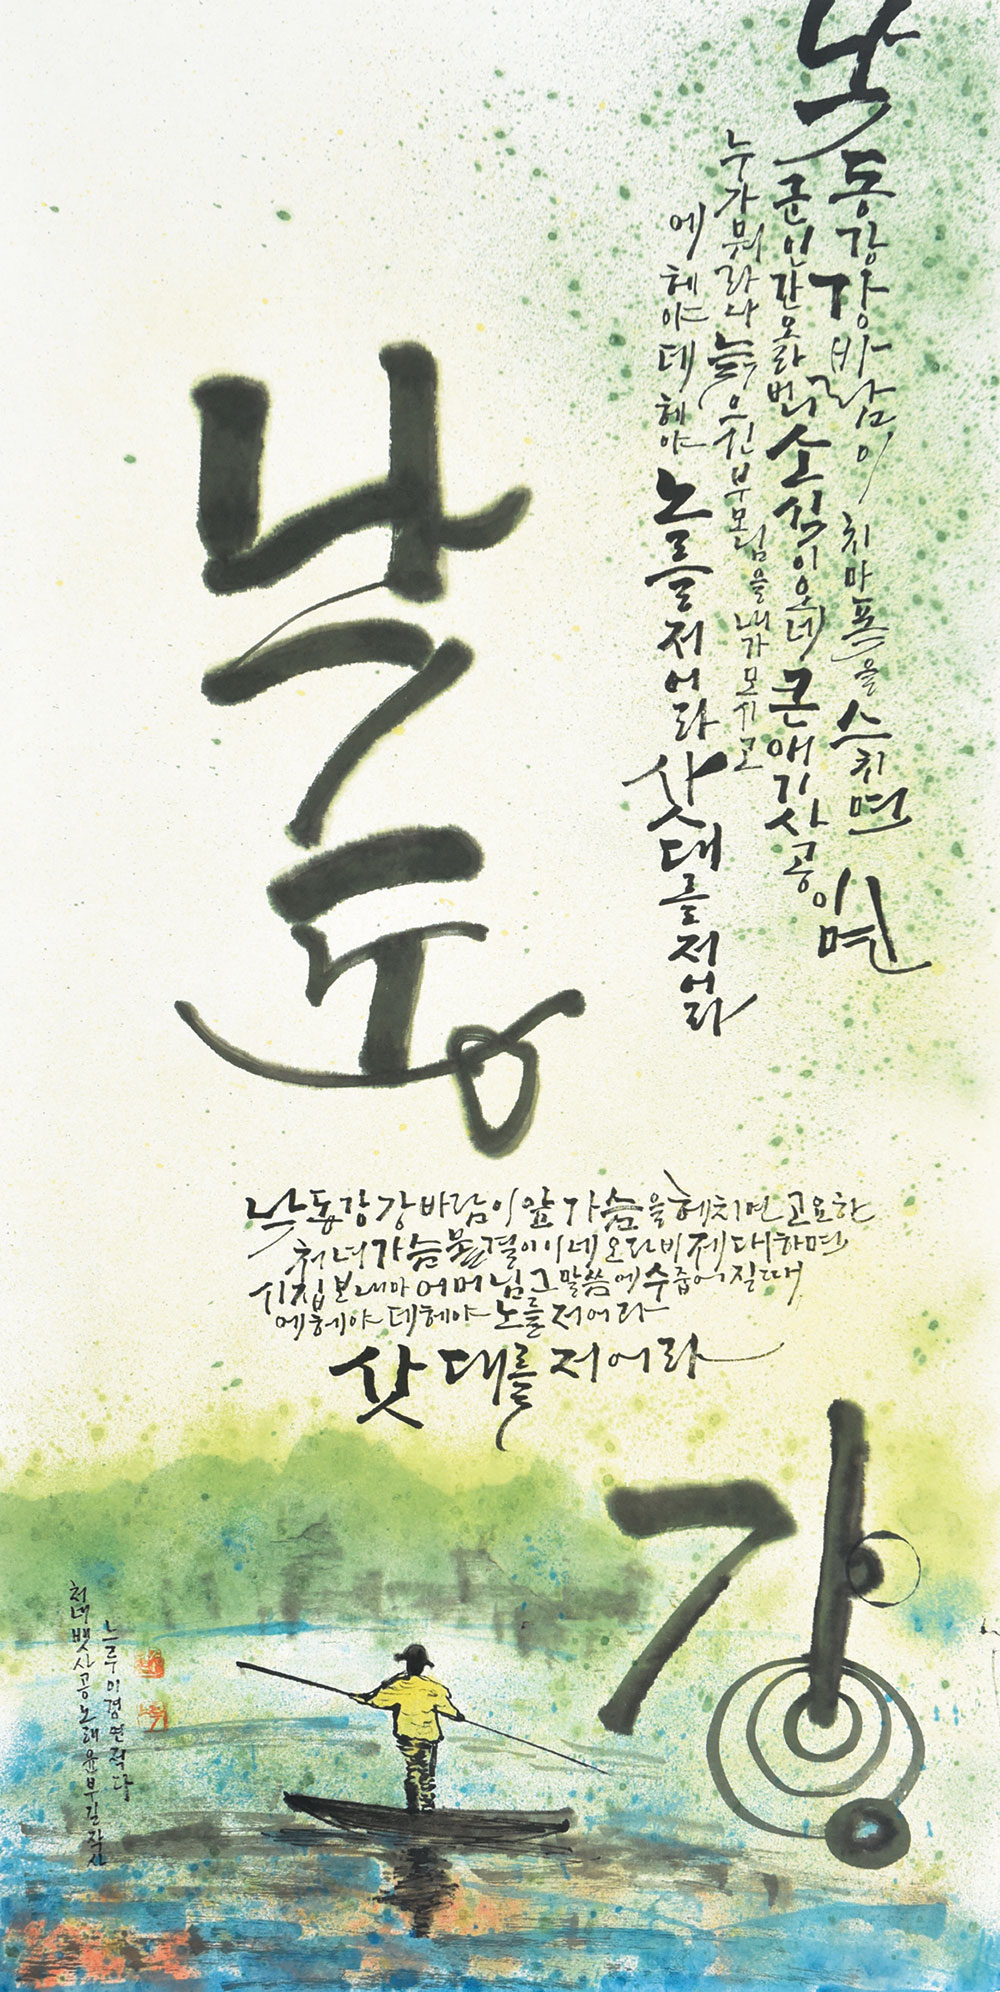 낙동강
낙동강 강바람이 치마폭을 스치면
군인 간 오라버니 소식이 오네 큰애기 사공이면
누가 뭐라나 늙으신 부모님을 내가 모시고
에헤야 데헤야 노를 저어라 삿대를 저어라
낙동강 강바람이 앞가슴을 헤치면 고요한
처녀가슴 물결이 이네 오라비 제대하면
시집보내마 어머님 그 말씀에 수줍어질 때
에헤야 데헤야 노를 저어라
삿대를 저어라
처녀뱃사공 노래 윤부길 작사
느루 이경면 적다